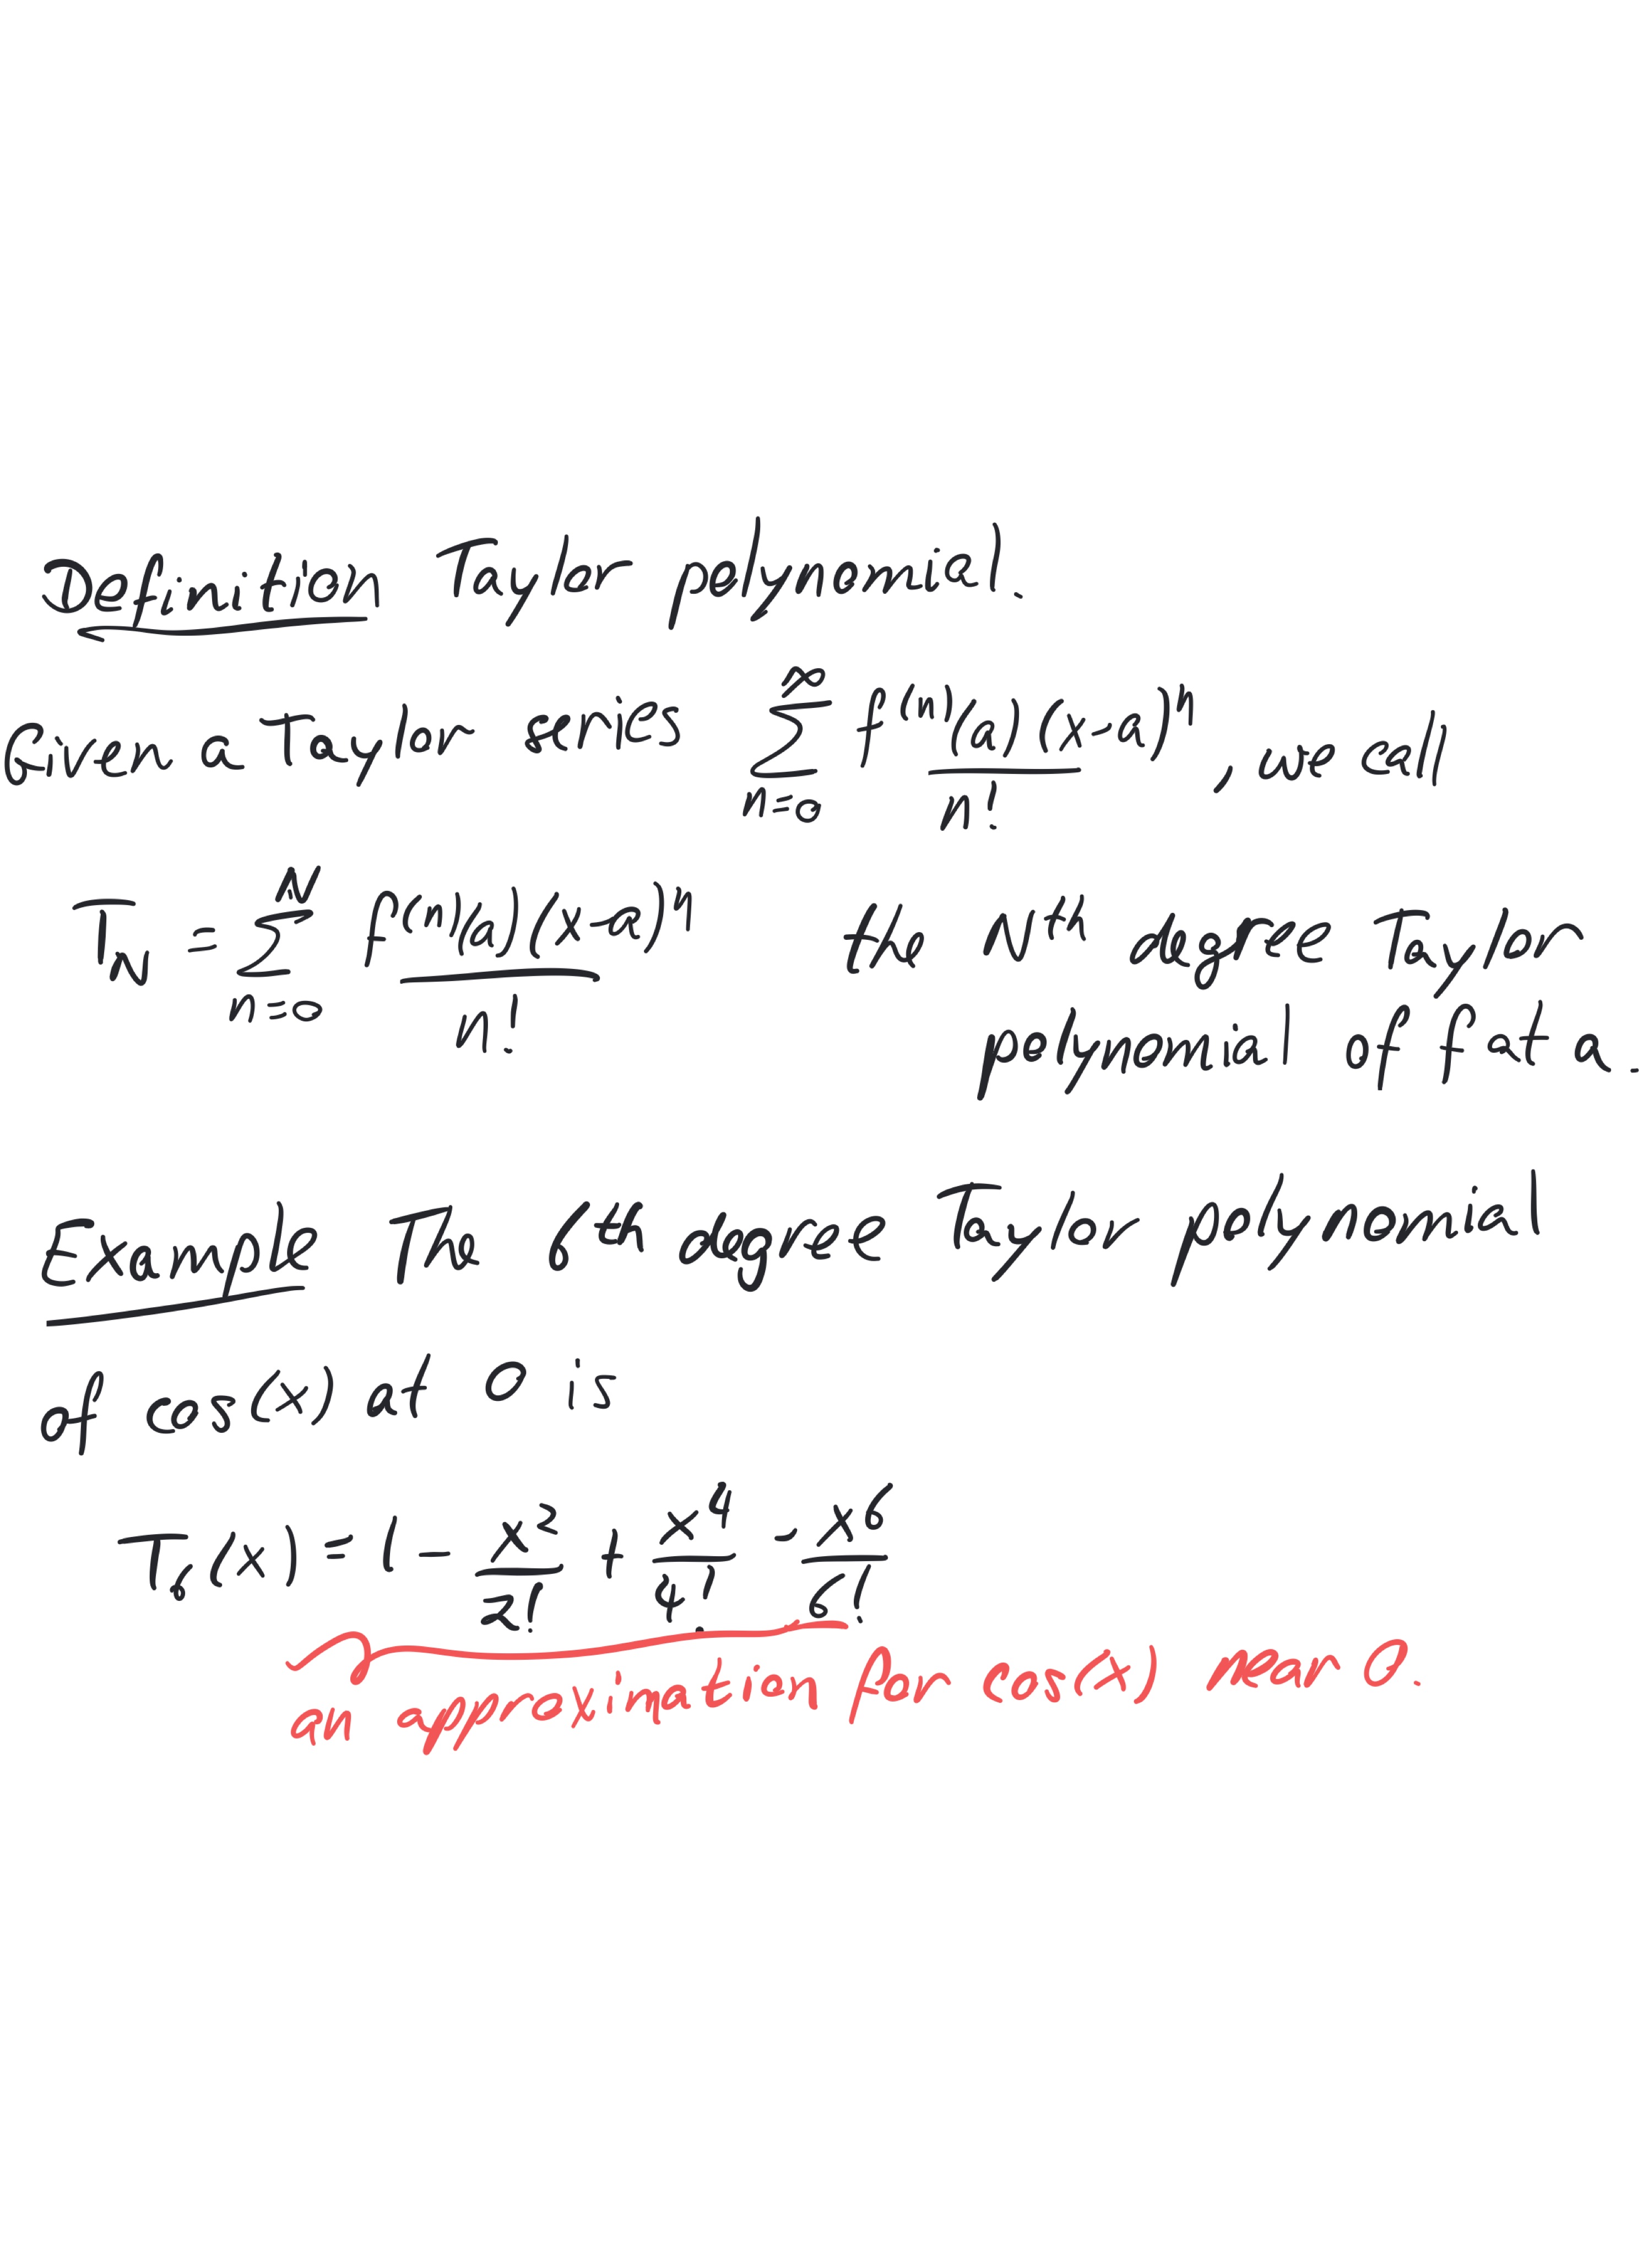 Definition Taylor polynomial.
Given a Taylor series $\sum_{n=0}^{\infty} \frac{f^{(n)}(a)(x-a)^n}{n!}$, we call
$T_N = \sum_{n=0}^{N} \frac{f^{(n)}(a)(x-a)^n}{n!}$ the Nth degree Taylor
polynomial of f at a.
Example The 6th degree Taylor polynomial
of cos(x) at 0 is
$T_6(x) = 1 - \frac{x^2}{2!} + \frac{x^4}{4!} - \frac{x^6}{6!}$
an approximation for cos(x) near 0.